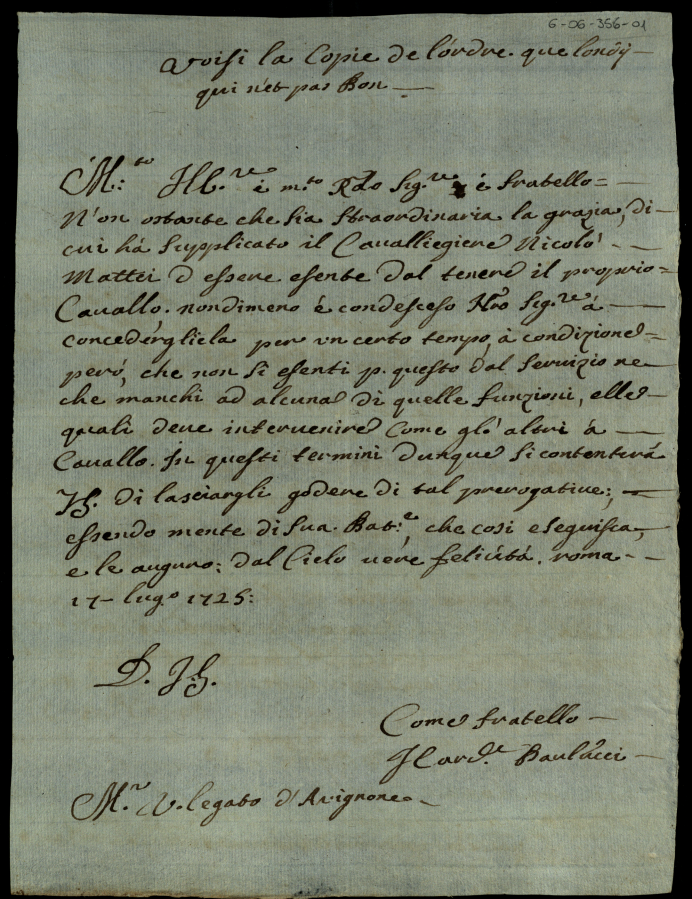 6-06-356-01
Voisi la Copie de lórdre que londÿ
qui nét pas Bon
M.to Ill.re è m.to Rdo Sig.re é fratello =
N'on ostante che sia straordinaria la grazia, di
cui há supplicato il Cavalliegiere Nicoló
Mattei d essere esente dal tenere il proprio =
Cavallo. nondimeno é condesceso Nro Sig.re á
concedérgliela per un certo tempo, à condizione =
peró, che non si esenti p. questo dal servizio ne
che manchi ad alcuna di quelle funzioni, elle
quali deve intervenire come gl'altri á
Cavallo. In questi termini dunque si contenterá
di lasciargli godere di tal prerogative;
essendo mente di sua Bat.e, che cosi eseguisca,
e le auguro: dal Cielo vere felicitá. roma
17 lug.o 1725:
Come fratello
Il Card.e Paulucci
M.r V. legato d'Avignone